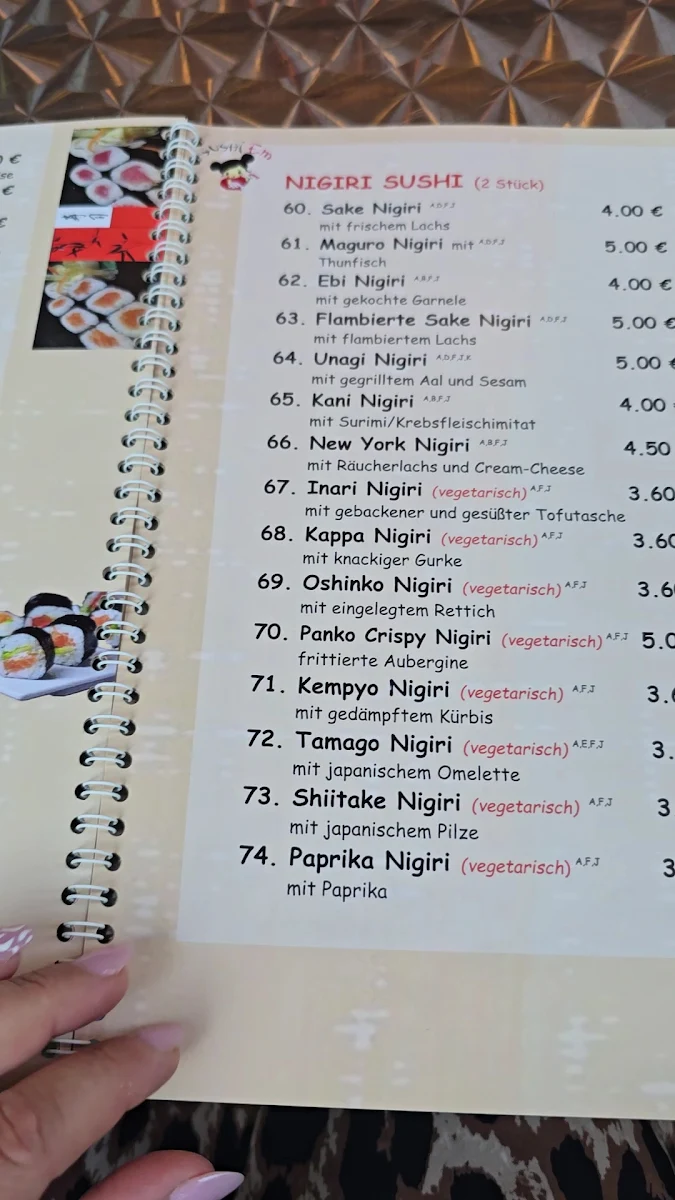 €
se
€
€
SUSHI Em
NIGIRI SUSHI (2 Stück)
60. Sake Nigiri A,D,F,J 4.00 €
mit frischem Lachs
61. Maguro Nigiri mit A,D,F,J 5.00 €
Thunfisch
62. Ebi Nigiri A,B,F,J 4.00 €
mit gekochte Garnele
63. Flambierte Sake Nigiri A,D,F,J 5.00 €
mit flambiertem Lachs
64. Unagi Nigiri A,D,F,J,K 5.00 €
mit gegrilltem Aal und Sesam
65. Kani Nigiri A,B,F,J 4.00
mit Surimi/Krebsfleischimitat
66. New York Nigiri A,B,F,J 4.50
mit Räucherlachs und Cream-Cheese
67. Inari Nigiri (vegetarisch) A,F,J 3.60
mit gebackener und gesüßter Tofutasche
68. Kappa Nigiri (vegetarisch) A,F,J 3.60
mit knackiger Gurke
69. Oshinko Nigiri (vegetarisch) A,F,J 3.6
mit eingelegtem Rettich
70. Panko Crispy Nigiri (vegetarisch) A,F,J 5.0
frittierte Aubergine
71. Kempyo Nigiri (vegetarisch) A,F,J 3.
mit gedämpftem Kürbis
72. Tamago Nigiri (vegetarisch) A,E,F,J 3.
mit japanischem Omelette
73. Shiitake Nigiri (vegetarisch) A,F,J 3
mit japanischem Pilze
74. Paprika Nigiri (vegetarisch) A,F,J 3
mit Paprika